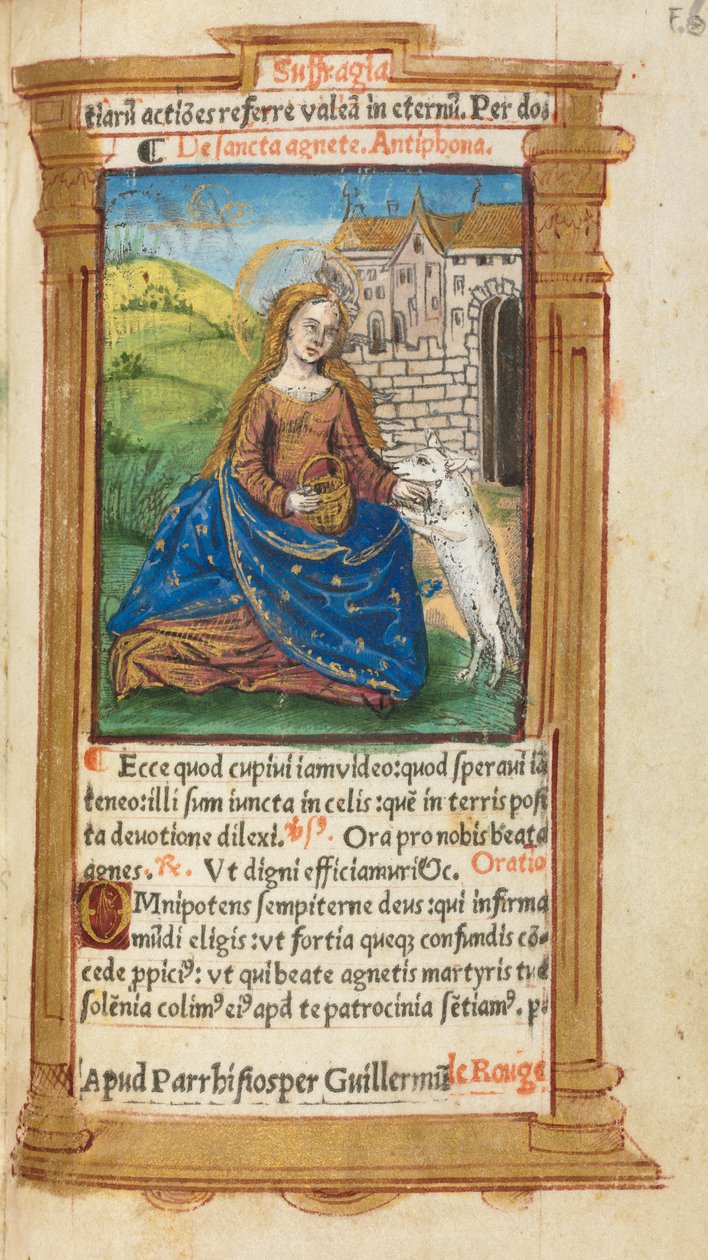 F.6
Suffragia
tiarũ actiões referre valeã in eternũ. Per do.
De sancta agnete. Antiphona.
Ecce quod cupivi iam video: quod speravi iã
teneo: illi sum iuncta in celis: quẽ in terris posi
ta devotione dilexi. v̄sꝰ. Ora pro nobis beata
agnes. ℞. Vt digni efficiamur ⁊c. Oratio
OMnipotens sempiterne deus: qui infirma
mũdi eligis: vt fortia queqꝫ confundis cõ-
cede ꝓpiciꝰ: vt qui beate agnetis martyris tue
solẽnia colimꝰ eiꝰ apd te patrocinia sẽtiamꝰ. p.
Apud Parrhisios per Guillermũ le Rouge